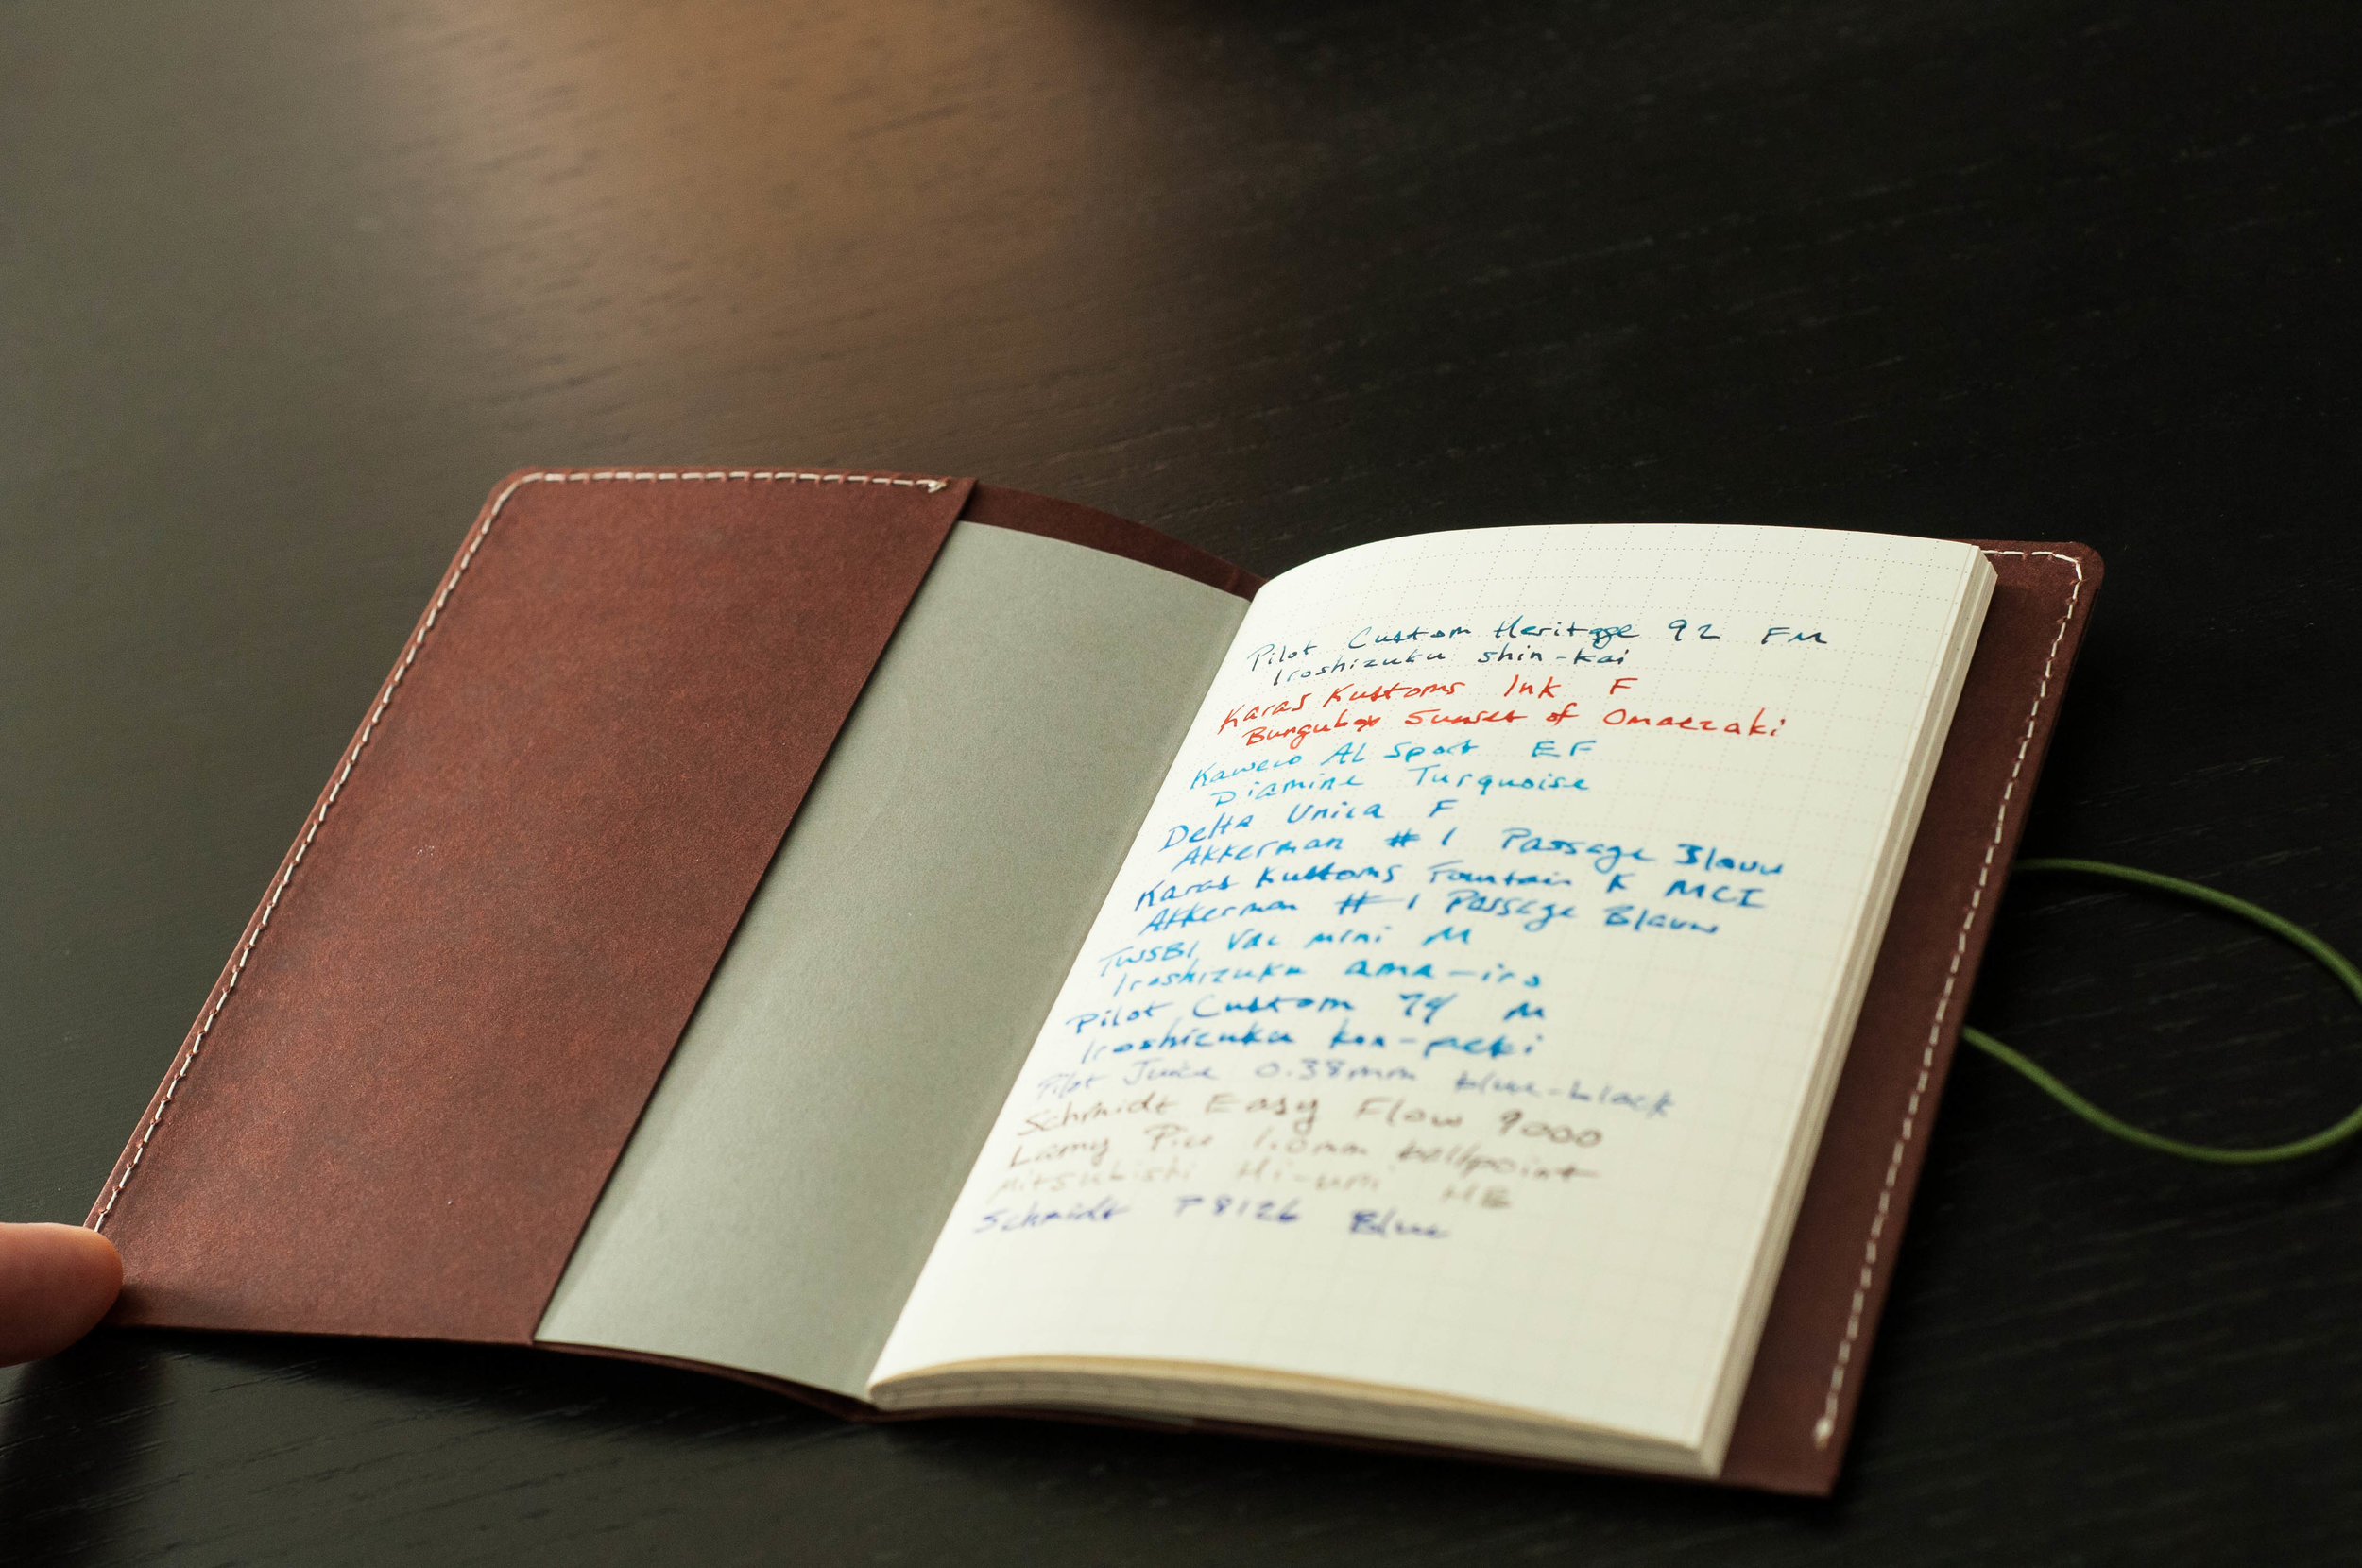 Pilot Custom Heritage 92 FM
Iroshizuku shin-kai
Karas Kustoms Ink F
Bungubox Sunset of Omaezaki
Kaweco AL Sport EF
Diamine Turquoise
Delta Unica F
Akkerman #1 Passage Blauw
Karas Kustoms Fountain K MCI
Akkerman #1 Passage Blauw
TWSBI Vac mini M
Iroshizuku ama-iro
Pilot Custom 74 M
Iroshizuku kon-peki
Pilot Juice 0.38mm blue-black
Schmidt Easy Flow 9000
Lamy Pico 1.0mm ballpoint
Mitsubishi Hi-uni HB
Schmidt P8126 Blue